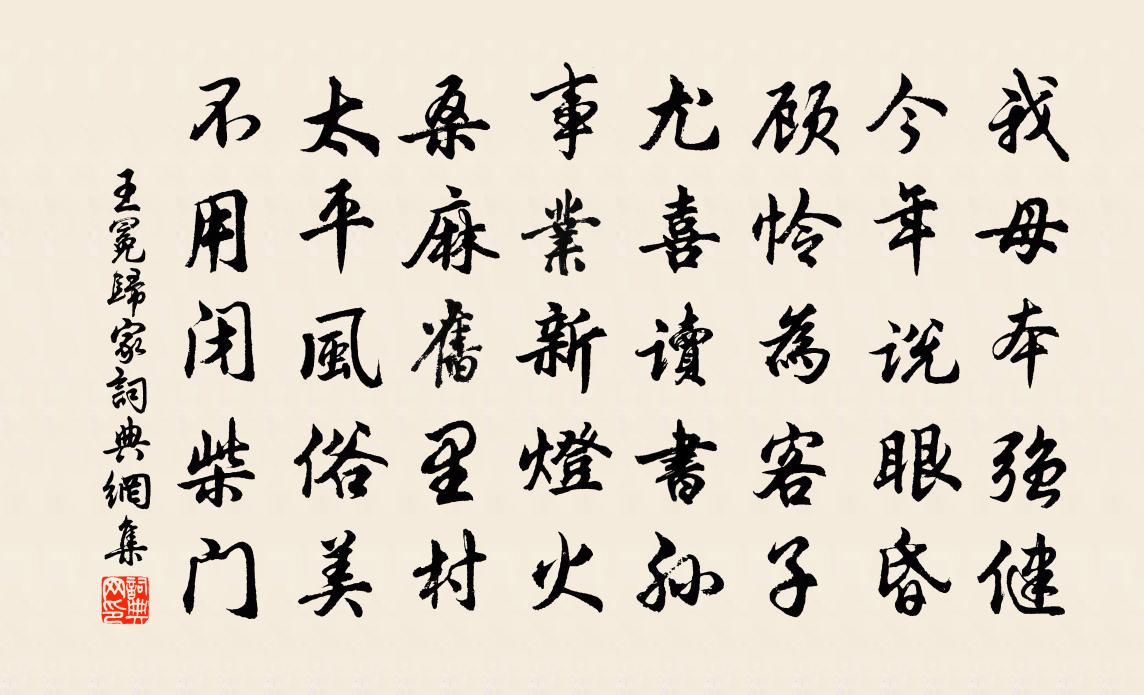 我母本强健
今年说眼昏
顾怜為客子
尤喜讀書孙
事業新燈火
桑麻舊里村
太平風俗美
不用闭柴门
王冕歸家詞典網集
詞典網印